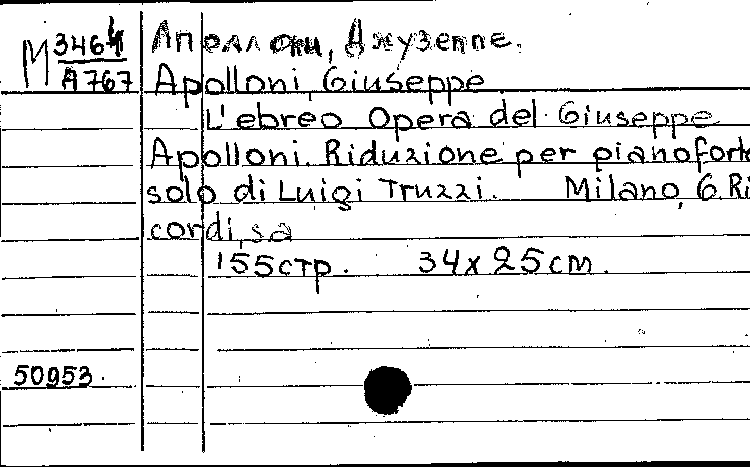 М 3464 Аполлони, Джузеппе.
А767 Apolloni, Giuseppe
L'ebreo Opera del Giuseppe
Apolloni. Riduzione per pianoforte
solo di Luigi Truzzi. Milano, G. Ri
cordi, sa
155 стр. 34x25 cm.
50953.